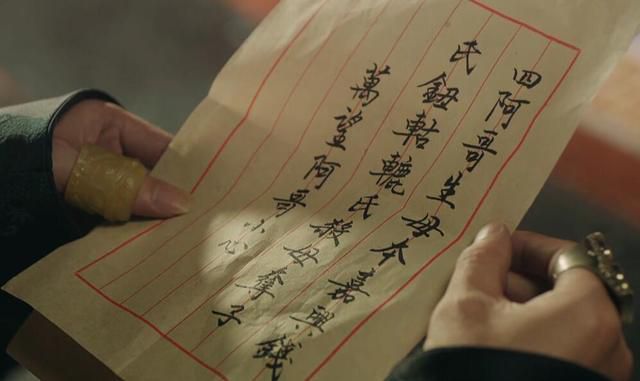 四阿哥生母本嘉興錢
氏鈕軲轆氏殺母奪子
萬望阿哥小心